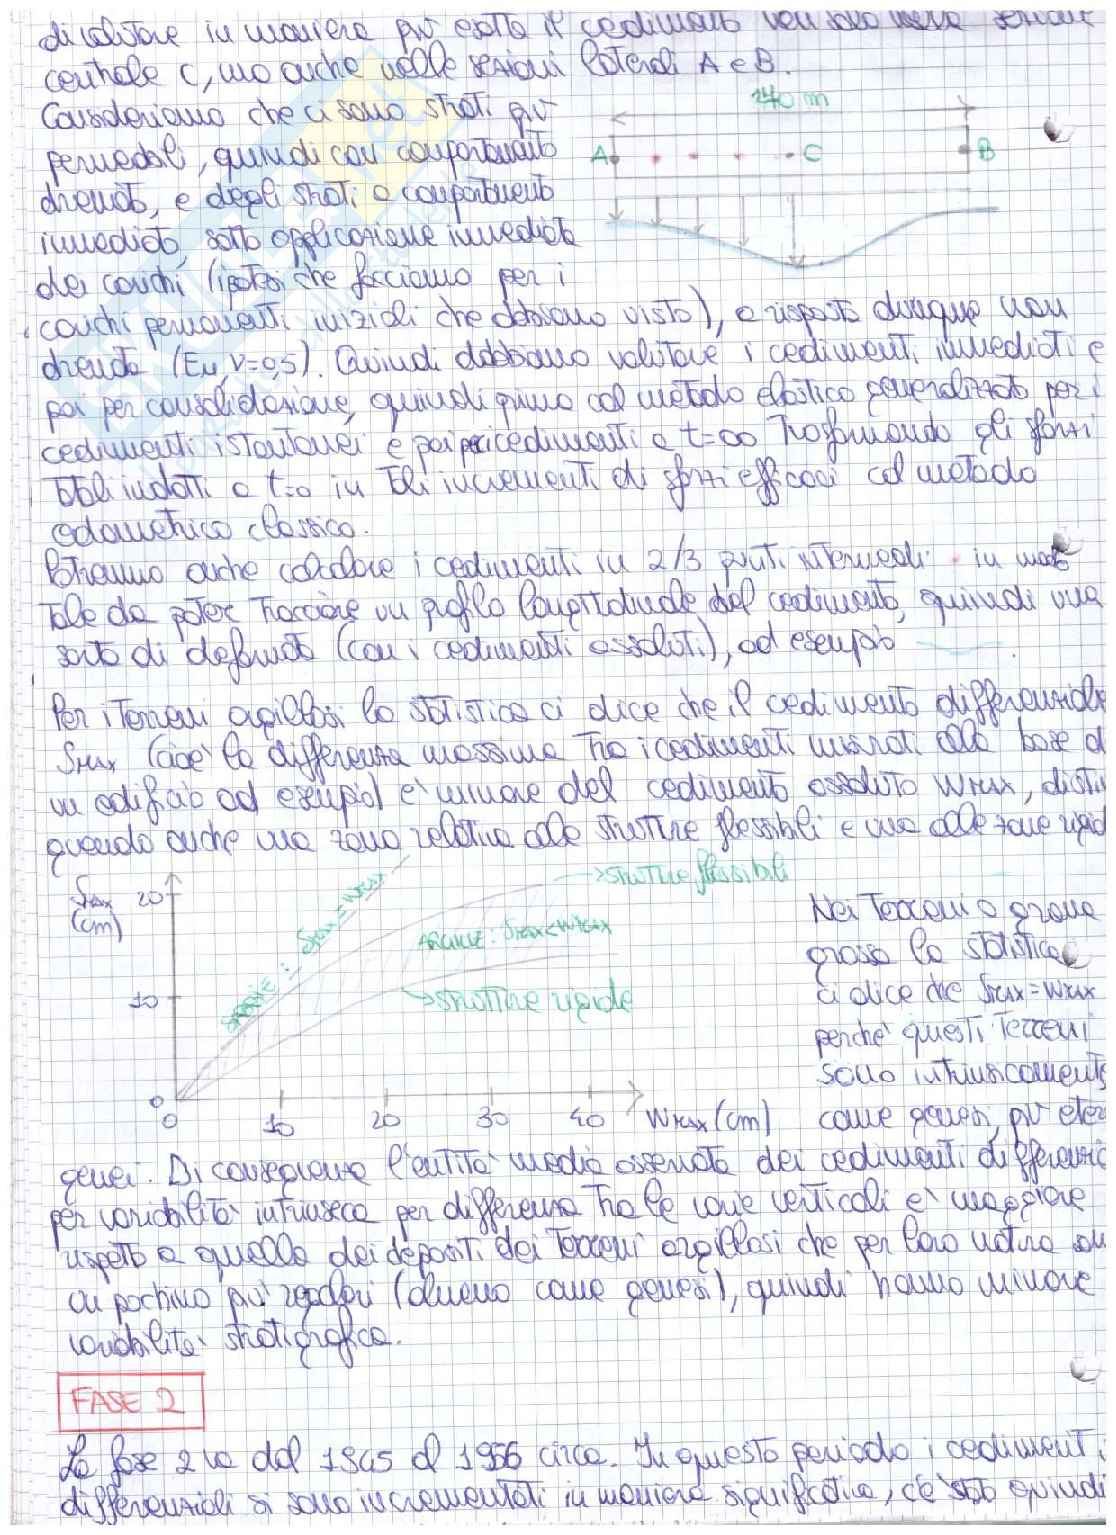 di valutare in maniera più esatta il cedimento non solo nella sezione
centrale C, ma anche nelle sezioni laterali A e B.
Consideriamo che ci sono strati più
permeabili, quindi con comportamento
drenato, e degli strati a comportamento
immediato, sotto applicazione immediata
dei carichi (ipotesi che facciamo per i
carichi permanenti iniziali che abbiamo visto), a risposta dunque non
drenata (Eu, ν=0,5). Quindi dobbiamo valutare i cedimenti immediati e
poi per consolidazione, quindi prima col metodo elastico generalizzato per i
cedimenti istantanei e poi per i cedimenti a t=∞ trasformando gli sforzi
totali indotti a t=0 in tali incrementi di sforzi efficaci col metodo
edometrico classico.
240 m
A
C
B
Potranno anche calcolare i cedimenti in 2/3 punti intermedi in modo
tale da poter tracciare un profilo longitudinale del cedimento, quindi una
sorta di deformata (con i cedimenti assoluti), ad esempio
Per i terreni argillosi la statistica ci dice che il cedimento differenziale
δMAX (cioè la differenza massima tra i cedimenti misurati alla base d
un edificio ad esempio) è minore del cedimento assoluto WMAX, distin
guendo anche una zona relativa alle strutture flessibili e una alle zone rigid
δMAX
(cm)
20
10
0
0
10
20
30
40
WMAX (cm)
SABBIE: δMAX = WMAX
→ strutture flessibili
ARGILLE: δMAX<WMAX
→ strutture rigide
Nei terreni a grana
grossa la statistica
ci dice che δMAX=WMAX
perché questi terreni
sono intrinsicamente
come genesi, più etero
genei. Di conseguenza l'entità media osservata dei cedimenti differenzia
per variabilità intrinseca per differenza tra le varie verticali è maggiore
rispetto a quella dei depositi dei terreni argillosi che per loro natura son
un pochino più regolari (almeno come genesi), quindi hanno minore
variabilità stratigrafica.
FASE 2
La fase 2 va dal 1945 al 1956 circa. In questo periodo i cedimenti
differenziali si sono incrementati in maniera significativa, c'è stato quindi